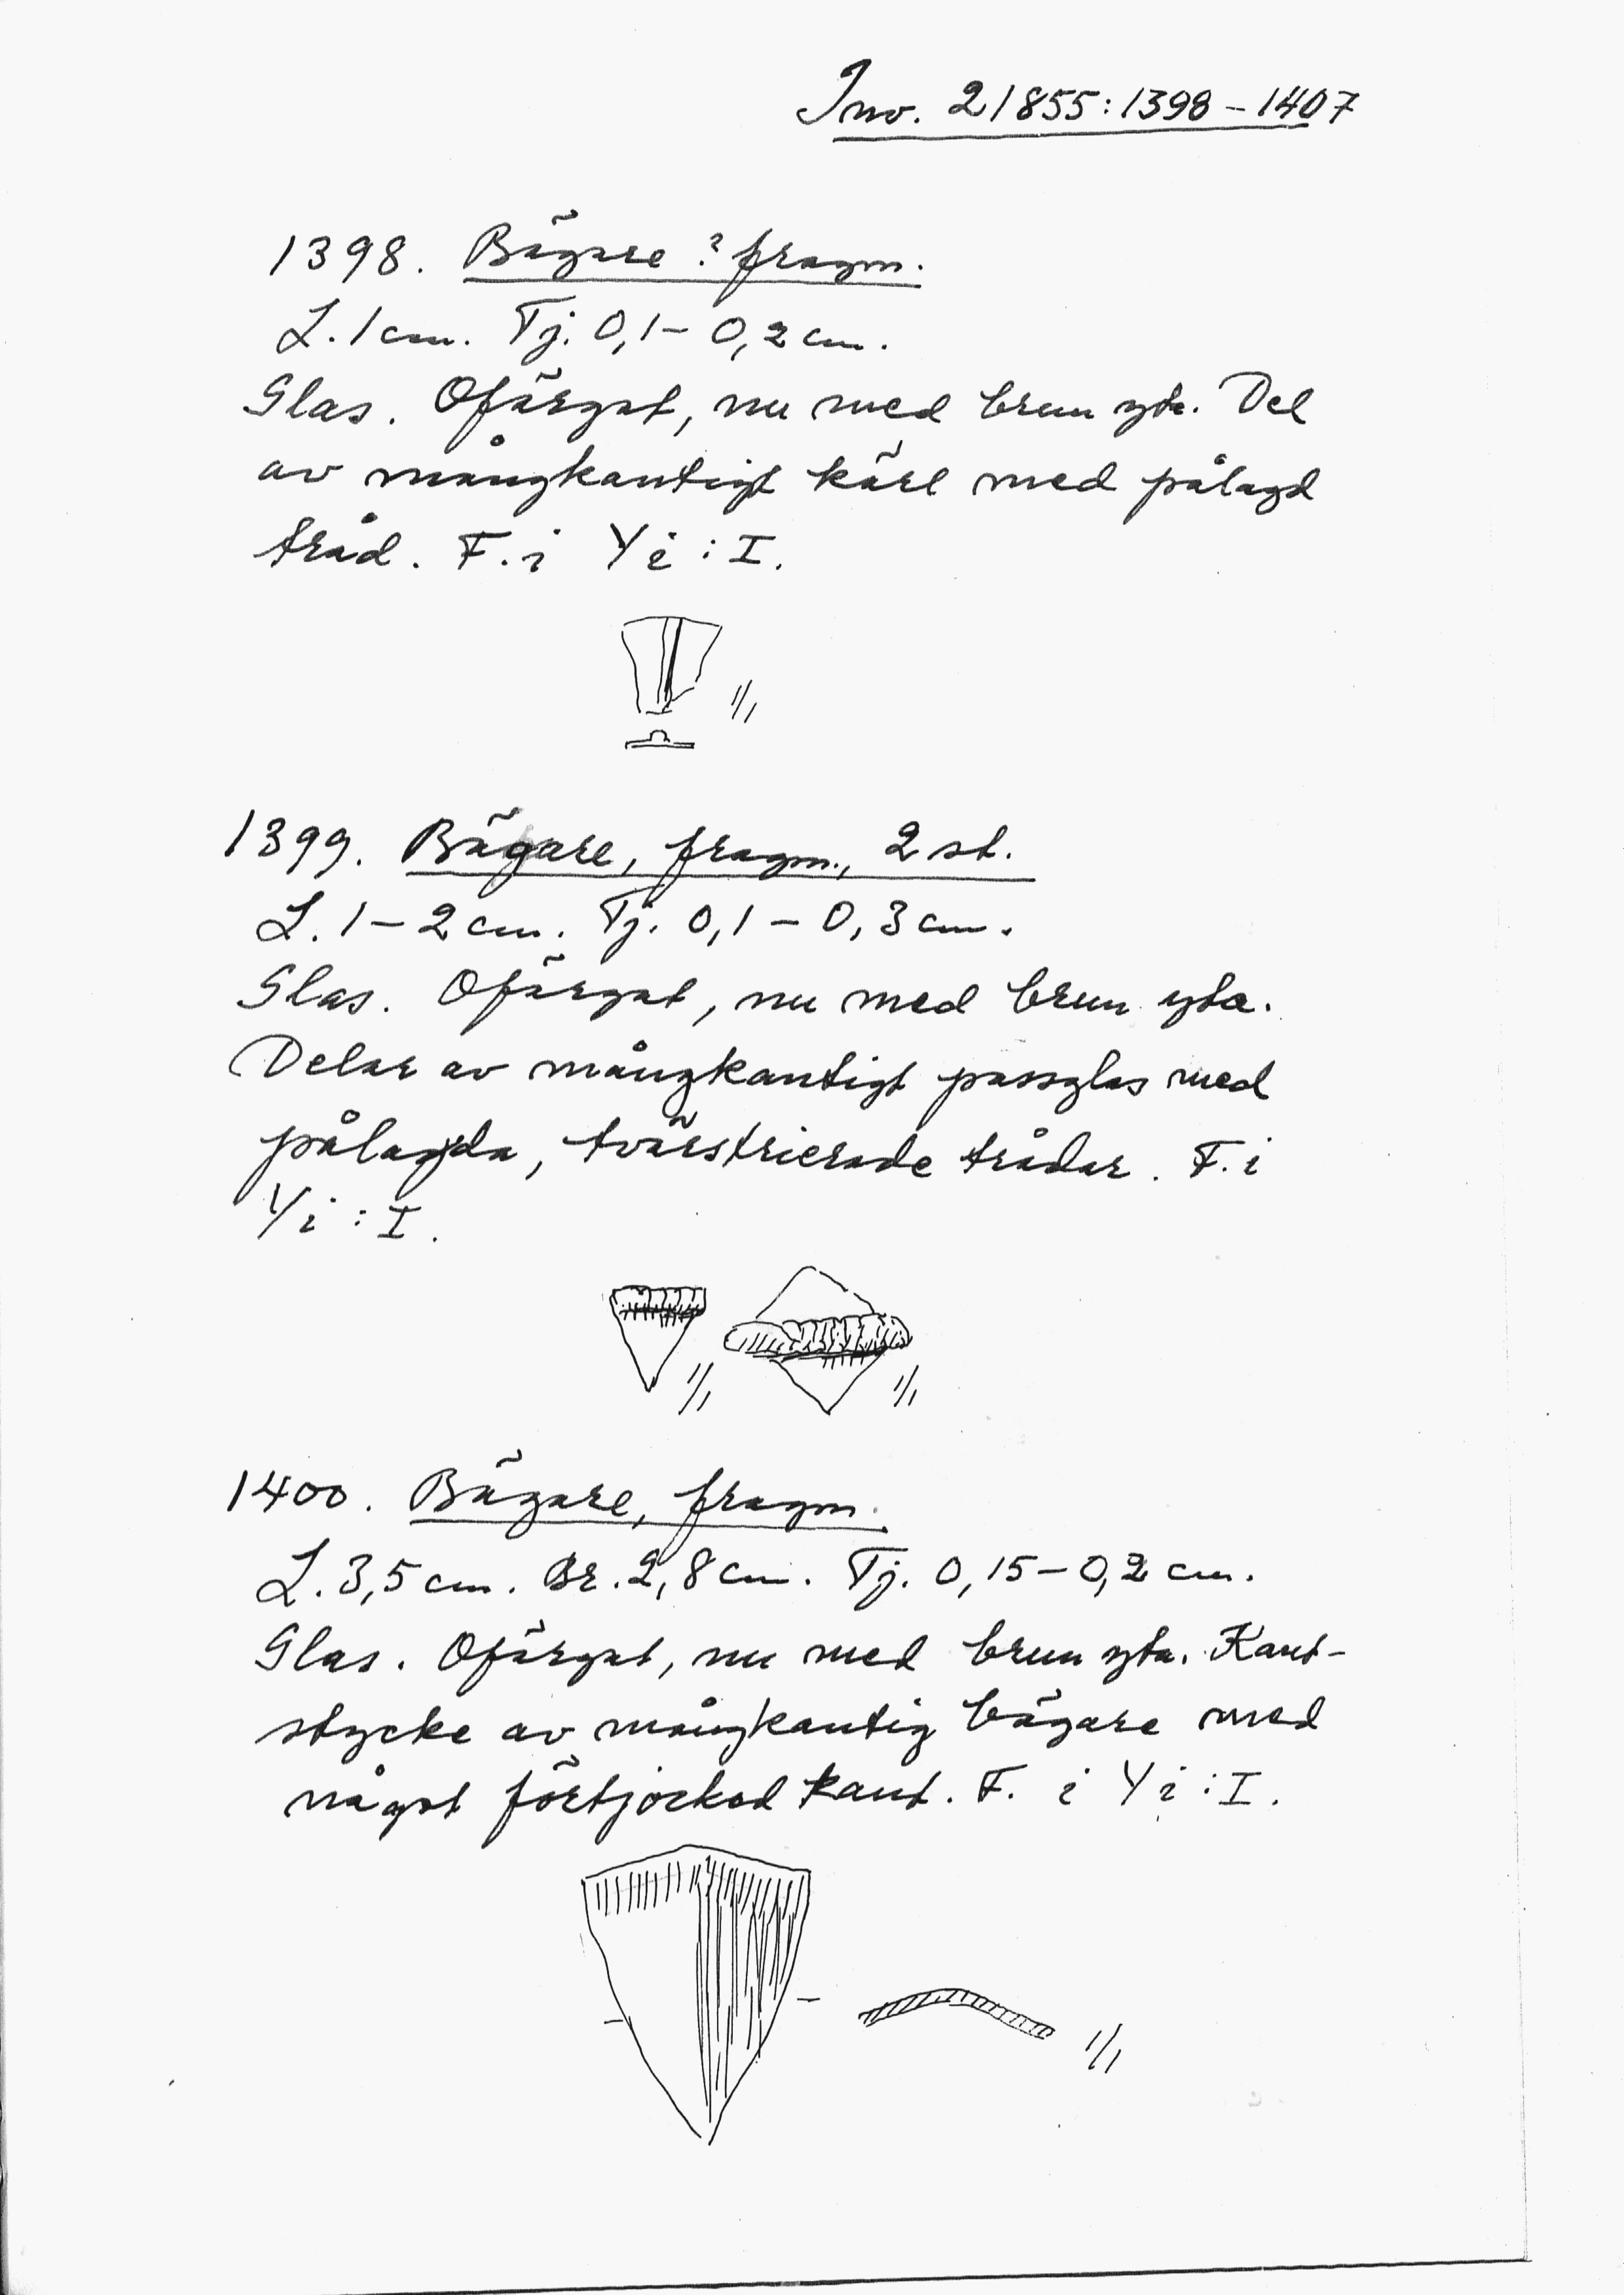 Inv. 21855:1398-1407
1398. Bägare? fragm.
L. 1 cm. Tj. 0,1-0,2 cm.
Glas. Ofärgat, nu med brun yta. Del
av mångkantigt kärl med pålagd
tråd. F. i Yi:I.
1/1
1399. Bägare, fragm., 2 st.
L. 1-2 cm. Tj. 0,1-0,3 cm.
Glas. Ofärgat, nu med brun yta.
Delar av mångkantigt passglas med
pålagda, tvärstrierade trådar. F. i
Yi:I.
1/1 1/1
1400. Bägare, fragm.
L. 3,5 cm. Br. 2,8 cm. Tj. 0,15-0,2 cm.
Glas. Ofärgat, nu med brun yta. Kant-
stycke av mångkantig bägare med
något förtjockad kant. F. i Yi:I.
1/1